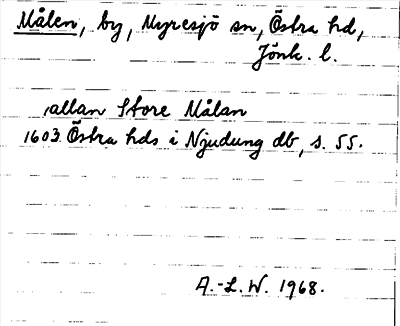 Målen, by, Myresjö sn, Östra hd,
Jönk. l.
, allan Store Målan
1603 Östra hds i Njudung db, s. 55.
A.-L. W. 1968.